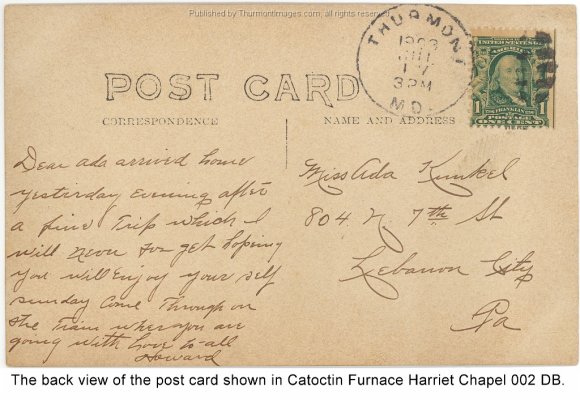 Published by ThurmontImages.com, all rights reserved.
THURMONT
3 PM
MD.
UNITED STATES
FRANKLIN
1 1
POSTAGE
ONE CENT
HERE
POST CARD
CORRESPONDENCE
NAME AND ADDRESS
Dear Ada arrived home
yesterday Evening after
a fine Trip which I
will never for get hoping
you will Enjoy your self
sunday Come Through on
the Train where you are
going with Love to all
Howard
Miss Ada Kunkel
804 N 7th St
Lebanon City
Pa
The back view of the post card shown in Catoctin Furnace Harriet Chapel 002 DB.